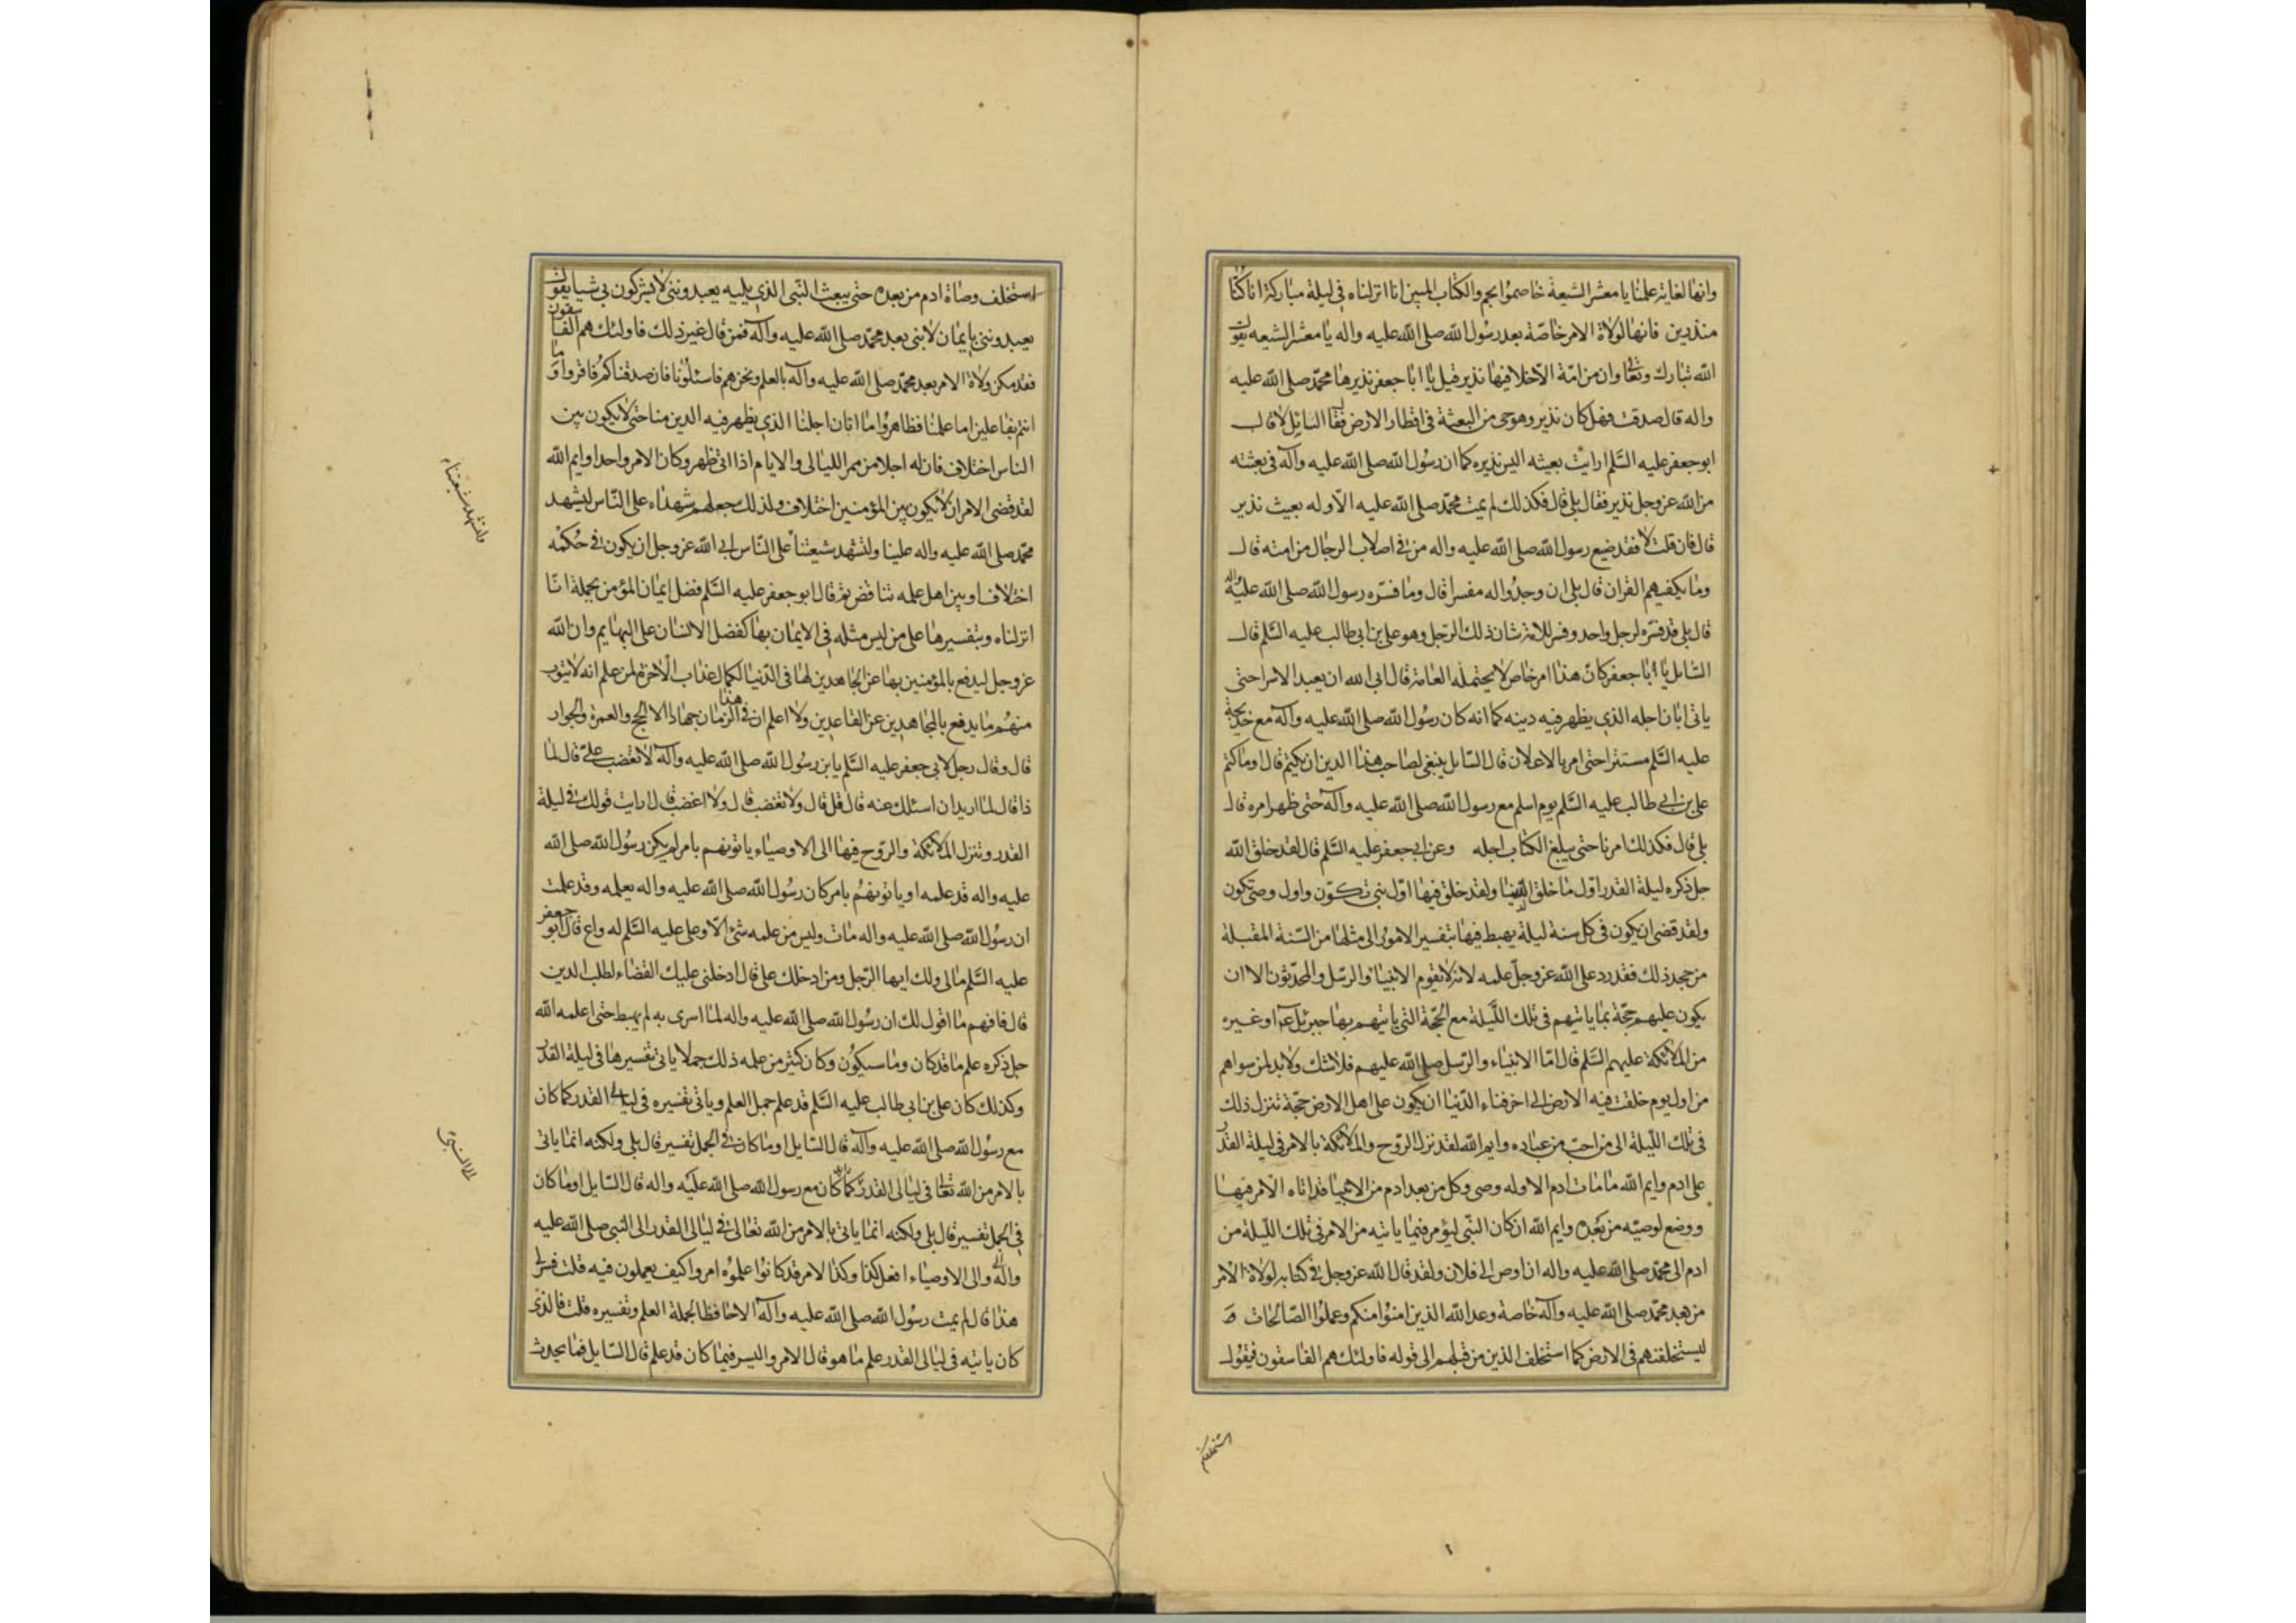 وانها لغاية علمنا يا معشر الشيعة خاصموا بحم والكتاب المبين انا انزلناه في ليلة مباركة انا كنا
منذرين فانها لولاة الامر خاصة بعد رسول الله صلى الله عليه واله يا معشر الشيعه يقول
الله تبارك وتعالى وان من امة الا خلا فيها نذير قيل يا ابا جعفر نذيرها محمد صلى الله عليه
واله قال صدقت فهل كان نذير وهو حي من البعثة في اقطار الارض فقال السايل لا قال
ابو جعفر عليه السلم ارايت بعيثه اليس نذيره كما ان رسول الله صلى الله عليه وآله في بعثته
من الله عز وجل نذير فقال بلى قال فكذلك لم يمت محمد صلى الله عليه الا وله بعيث نذير
قال فان قلت لا فقد ضيع رسول الله صلى الله عليه واله من في اصلاب الرجال من امته قال
وما يكفيهم القران قال بلى ان وجدوا له مفسرا قال وما فسره رسول الله صلى الله عليه واله
قال بلى قد فسره لرجل واحد وفسر للامة شان ذلك الرجل وهو علي بن ابي طالب عليه السلم قال
السايل يا ابا جعفر كان هذا امر خاص لا يحتمله العامة قال ابى الله ان يعبد الا سرا حتى
ياتي ابان اجله الذي يظهر فيه دينه كما انه كان رسول الله صلى الله عليه وآله مع خديجة
عليه السلم مستترا حتى امر بالاعلان قال السايل ينبغي لصاحب هذا الدين ان يكتم قال اوما كتم
علي بن ابي طالب عليه السلم يوم اسلم مع رسول الله صلى الله عليه وآله حتى ظهر امره قال
بلى قال فكذلك امرنا حتى يبلغ الكتاب اجله وعن ابي جعفر عليه السلم قال لقد خلق الله
جل ذكره ليلة القدر اول ما خلق الدنيا ولقد خلق فيها اول نبي تكون واول وصي تكون
ولقد قضى ان يكون في كل سنة ليلة يهبط فيها بتفسير الامور الى مثلها من السنة المقبلة
من جحد ذلك فقد رد على الله عز وجل علمه لانه لا تقوم الانبياء والرسل والمحدثون الا ان
يكون عليهم حجة بما ياتيهم في تلك الليلة مع الحجة التي ياتيهم بها جبرئل ع او غيره
من الملائكة عليهم السلم قال اما الانبياء والرسل صلى الله عليهم فلا شك ولا بد لمن سواهم
من اول يوم خلقت فيه الارض الى اخر فناء الدنيا ان يكون على اهل الارض حجة تنزل ذلك
في تلك الليلة الى من احب من عباده وايم الله لقد نزل الروح والملائكة بالامر في ليلة القدر
على ادم وايم الله ما مات ادم الا وله وصي وكل من بعد ادم من الانبياء قد اتاه الامر فيها
ووضع لوصيه من بعده وايم الله ان كان النبي ليؤمر فيما ياتيه من الامر في تلك الليلة من
ادم الى محمد صلى الله عليه واله ان اوص الى فلان ولقد قال الله عز وجل في كتابه لولاة الامر
من بعد محمد صلى الله عليه وآله خاصة وعد الله الذين امنوا منكم وعملوا الصالحات
ليستخلفنهم في الارض كما استخلف الذين من قبلهم الى قوله فاولئك هم الفاسقون فيقول
استخلفكم
استخلف وصاة ادم من بعده حتى يبعث النبي الذي يليه يعبدونني لا يشركون بي شيا يقول
يعبدونني بايمان لا نبي بعد محمد صلى الله عليه وآله فمن قال غير ذلك فاولئك هم الفاسقون
فقد مكن ولاة الامر بعد محمد صلى الله عليه وآله بالعلم ونحن هم فاسئلونا فان صدقناكم فاقروا وما
انتم بفاعلين اما علمنا فظاهر واما ابان اجلنا الذي يظهر فيه الدين منا حتى لا يكون بين
الناس اختلاف فان له اجلا من ممر الليالي والايام اذا اتى ظهر وكان الامر واحدا وايم الله
لقد قضي الامر ان لا يكون بين المؤمنين اختلاف ولذلك جعلهم شهداء على الناس ليشهد
محمد صلى الله عليه واله علينا ولتشهد شيعتنا على الناس ابى الله عز وجل ان يكون في حكمه
اختلاف او بين اهل علمه تناقض ثم قال ابو جعفر عليه السلم فضل ايمان المؤمن بجملة انا
انزلناه وبتفسيرها على من ليس مثله في الايمان بها كفضل الانسان على البهايم وان الله
عز وجل ليدفع بالمؤمنين بها عن الجاهدين لها في الدنيا لكمال عذاب الاخرة لمن علم انه لا يتوب
منهم ما يدفع بالمجاهدين عن القاعدين ولا اعلم ان في هذا الزمان جهادا الا الحج والعمرة والجوار
قال وقال رجل لابي جعفر عليه السلم يا بن رسول الله صلى الله عليه وآله لا تغضب علي قال لما
ذا قال لما اريد ان اسئلك عنه قال قل قال ولا تغضب قال ولا اغضب قال ارايت قولك في ليلة
القدر وتنزل الملائكة والروح فيها الى الاوصياء ياتونهم بامر لم يكن رسول الله صلى الله
عليه واله قد علمه او ياتونهم بامر كان رسول الله صلى الله عليه واله يعلمه وقد علمت
ان رسول الله صلى الله عليه واله مات وليس من علمه شئ الا وعلي عليه السلم له واع قال ابو جعفر
عليه السلم مالي ولك ايها الرجل ومن ادخلك علي قال ادخلني عليك القضاء لطلب الدين
قال فافهم ما اقول لك ان رسول الله صلى الله عليه واله لما اسري به لم يهبط حتى اعلمه الله
جل ذكره علم ما قد كان وما سيكون وكان كثير من علمه ذلك جملا ياتي تفسيرها في ليلة القدر
وكذلك كان علي بن ابي طالب عليه السلم قد علم جمل العلم وياتي تفسيره في ليالي القدر كما كان
مع رسول الله صلى الله عليه وآله قال السايل اوما كان في الجمل تفسير قال بلى ولكنه انما ياتي
بالامر من الله تعالى في ليالي القدر كما كان مع رسول الله صلى الله عليه واله قال السايل اوما كان
في الجمل تفسير قال بلى ولكنه انما ياتي بالامر من الله تعالى في ليالي القدر الى النبي صلى الله عليه
واله والى الاوصياء افعل كذا وكذا لامر قد كانوا علموه امروا كيف يعملون فيه قلت فسر لي
هذا قال لم يمت رسول الله صلى الله عليه وآله الا حافظا لجملة العلم وتفسيره قلت فالذي
كان ياتيه في ليالي القدر علم ما هو قال الامر واليسر فيما كان قد علم قال السايل فما يحدث
ولتشهد شيعتنا
الى النبي